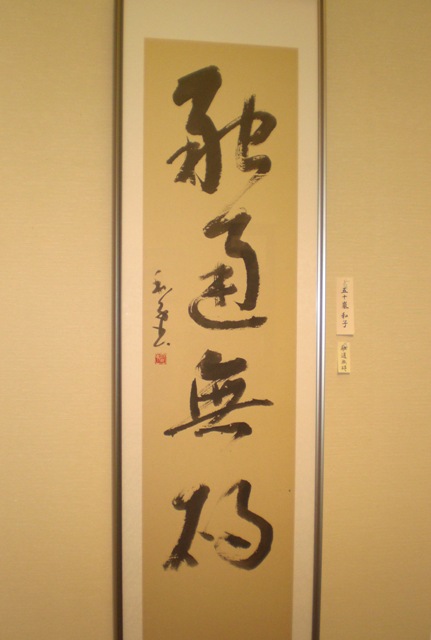 融通無碍
和子書
五十嵐 和子
融通無碍